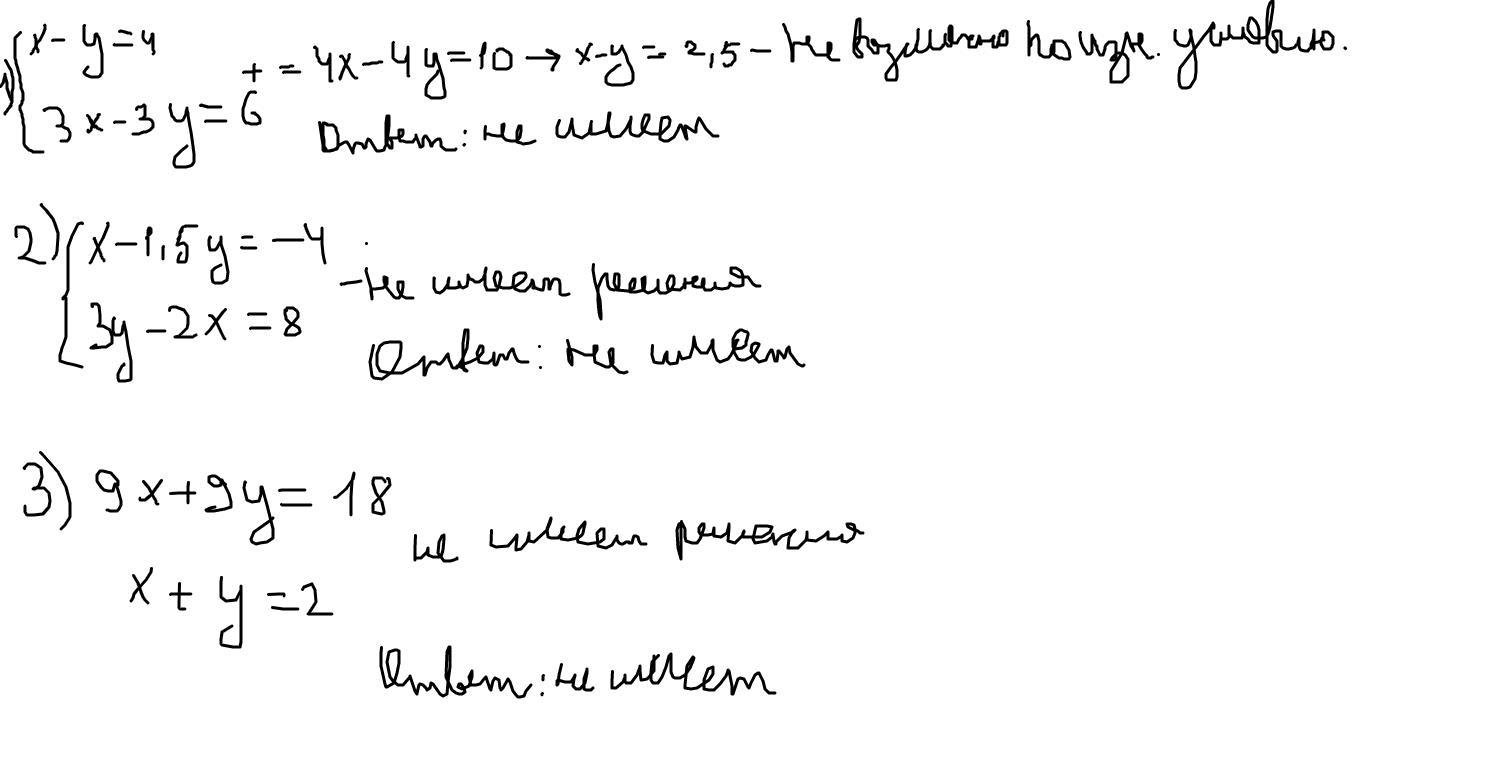 1) { x - y = 4
3x - 3y = 6 + = 4x - 4y = 10 → x - y = 2,5 - не возможно по изн. условию.
Ответ: не имеет
2) { x - 1,5y = -4
3y - 2x = 8 - не имеет решения
Ответ: не имеет
3) 9x + 9y = 18
не имеет решения
x + y = 2
Ответ: не имеет